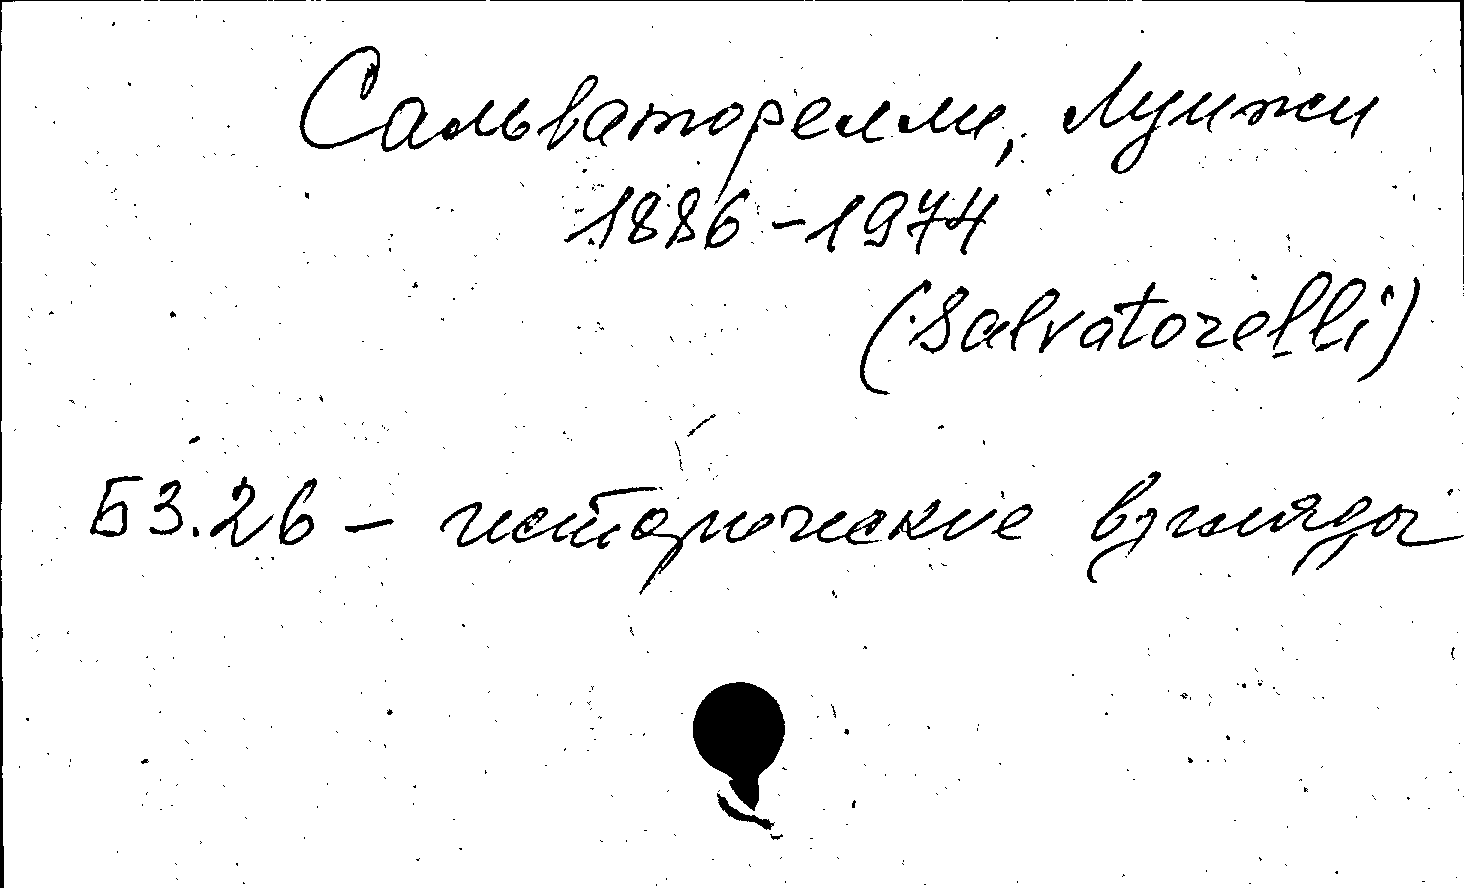 Сальваторелли, Луижи
1886-1974
(Salvatorelli)
Б3.26 - исторические взгляды